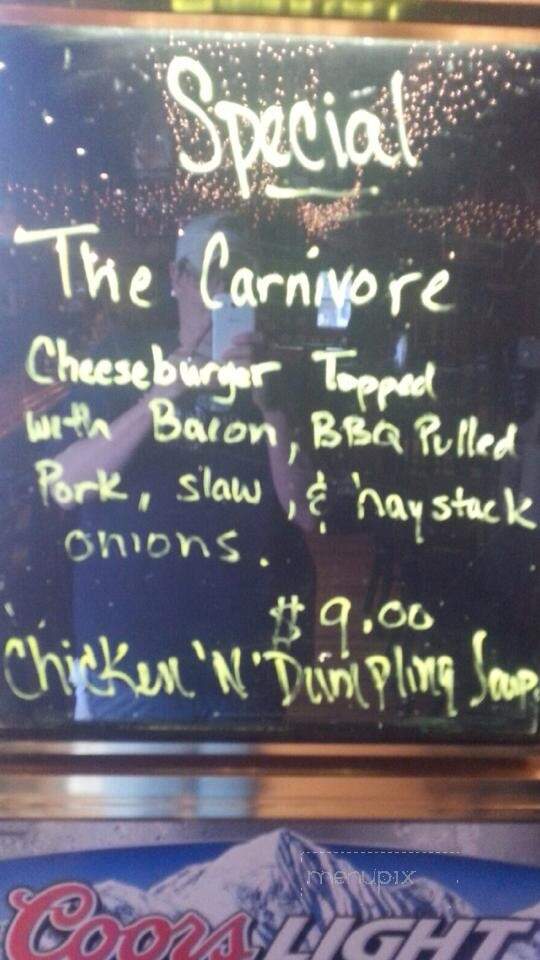 Special
The Carnivore
Cheeseburger Topped
with Bacon, BBQ Pulled
Pork, slaw, & haystack
onions.
$9.00
Chicken 'N' Dumpling Soup
menupix
Coors LIGHT